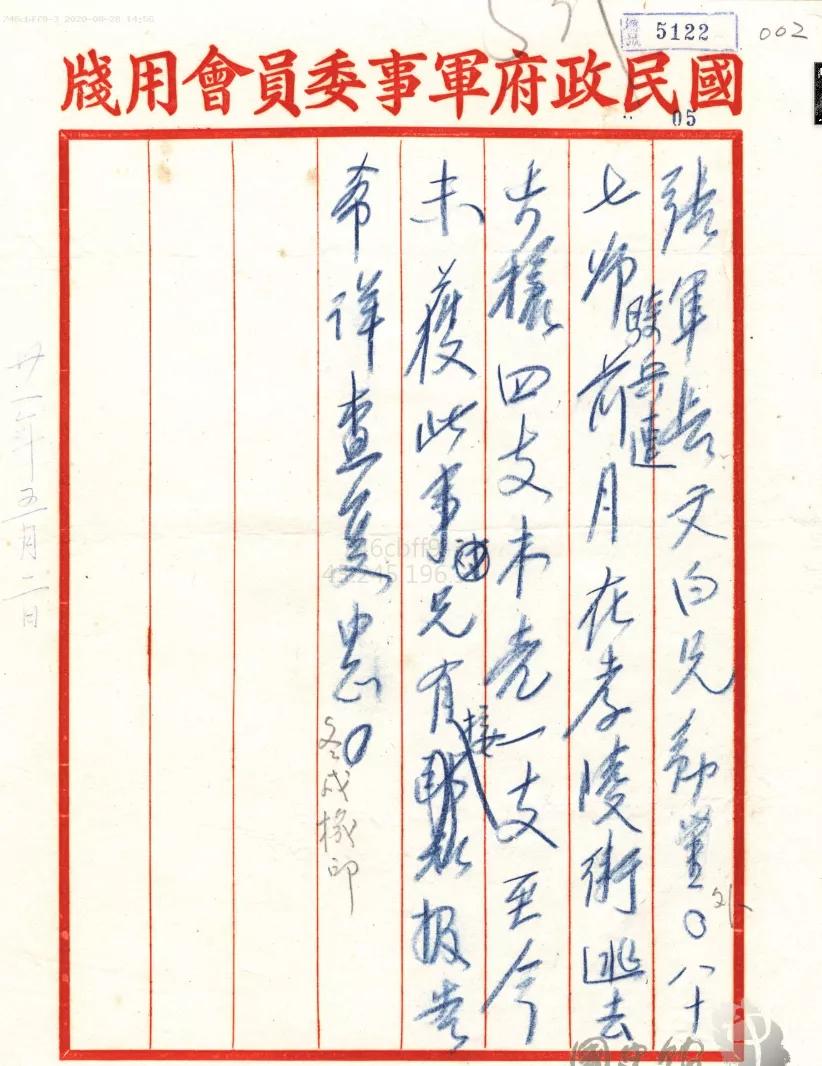 746cbff9-3 2020-08-28 14:56
5122
002
國民政府軍事委員會用牋
05
張軍長文白兄勛鑒〇八十
七師騎兵連前月在孝陵衛逃去
步槍四支木壳一支至今
未獲此事兄有接報告
希詳查复
冬戌機印
廿一年五月二日
國史館